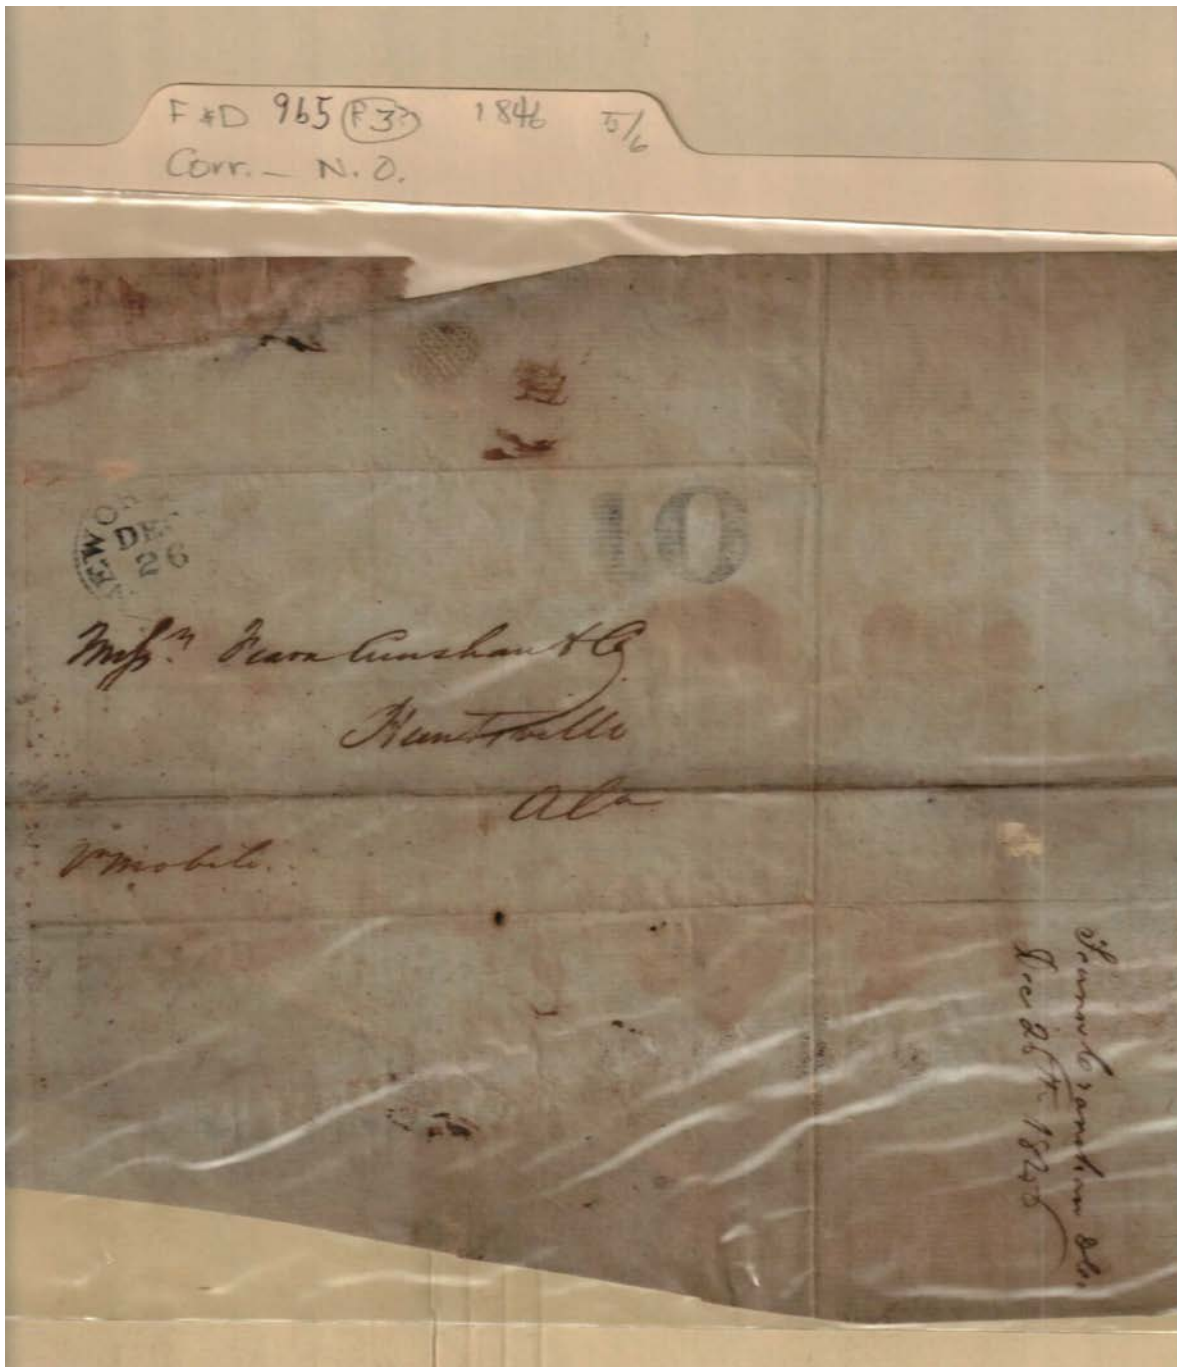 F & D 965 (F3?) 1846 5/6
Corr. — N. O.
10
NEW O
DE
26
Messrs. Fearn Crenshaw & Co
Huntsville
Ala
Pr Mobile.
Dec 25th 184